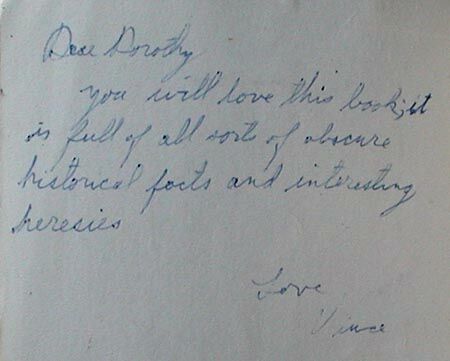 Dear Dorothy
you will love this book; it
is full of all sorts of obscure
historical facts and interesting
heresies
Love
Vince